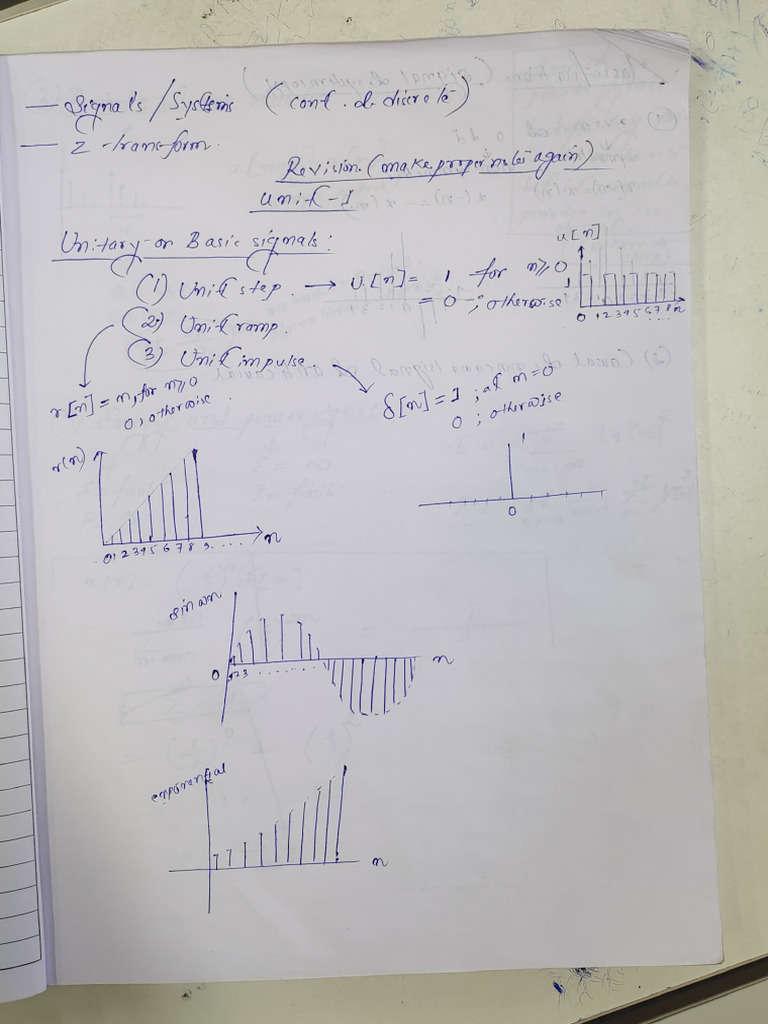 — Signals/Systems (cont. & discrete)
— Z-transform.
Revision (make proper notes again)
Unit-1
Unitary or Basic signals:
(1) Unit step → u[n] = 1 for n≥0
= 0 ; otherwise
u[n]
1
0 1 2 3 4 5 6 7 8 n
(2) Unit ramp.
(3) Unit impulse
r[n] = n, for n≥0
0, otherwise
δ[n] = 1 ; at n=0
0 ; otherwise
r(n)
0 1 2 3 4 5 6 7 8 9 .... n
1
0
sin ωn
0 1 2 3 ........ n
exponential
n